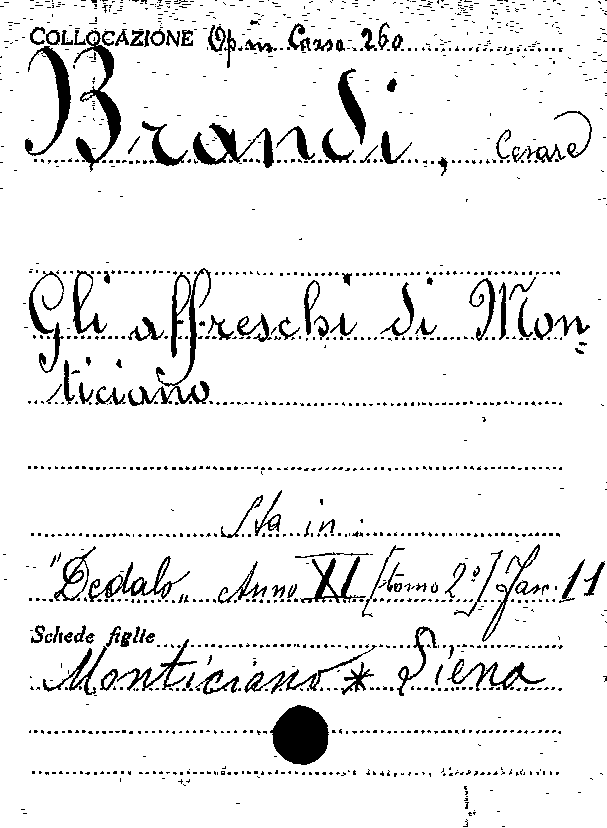 COLLOCAZIONE Op. in Corso 260
Brandi, Cesare
Gli affreschi di Mon=
ticiano
Sta in:
"Dedalo„ Anno XI [tomo 2º] Fasc. 11
Schede figlie
Monticiano * Siena